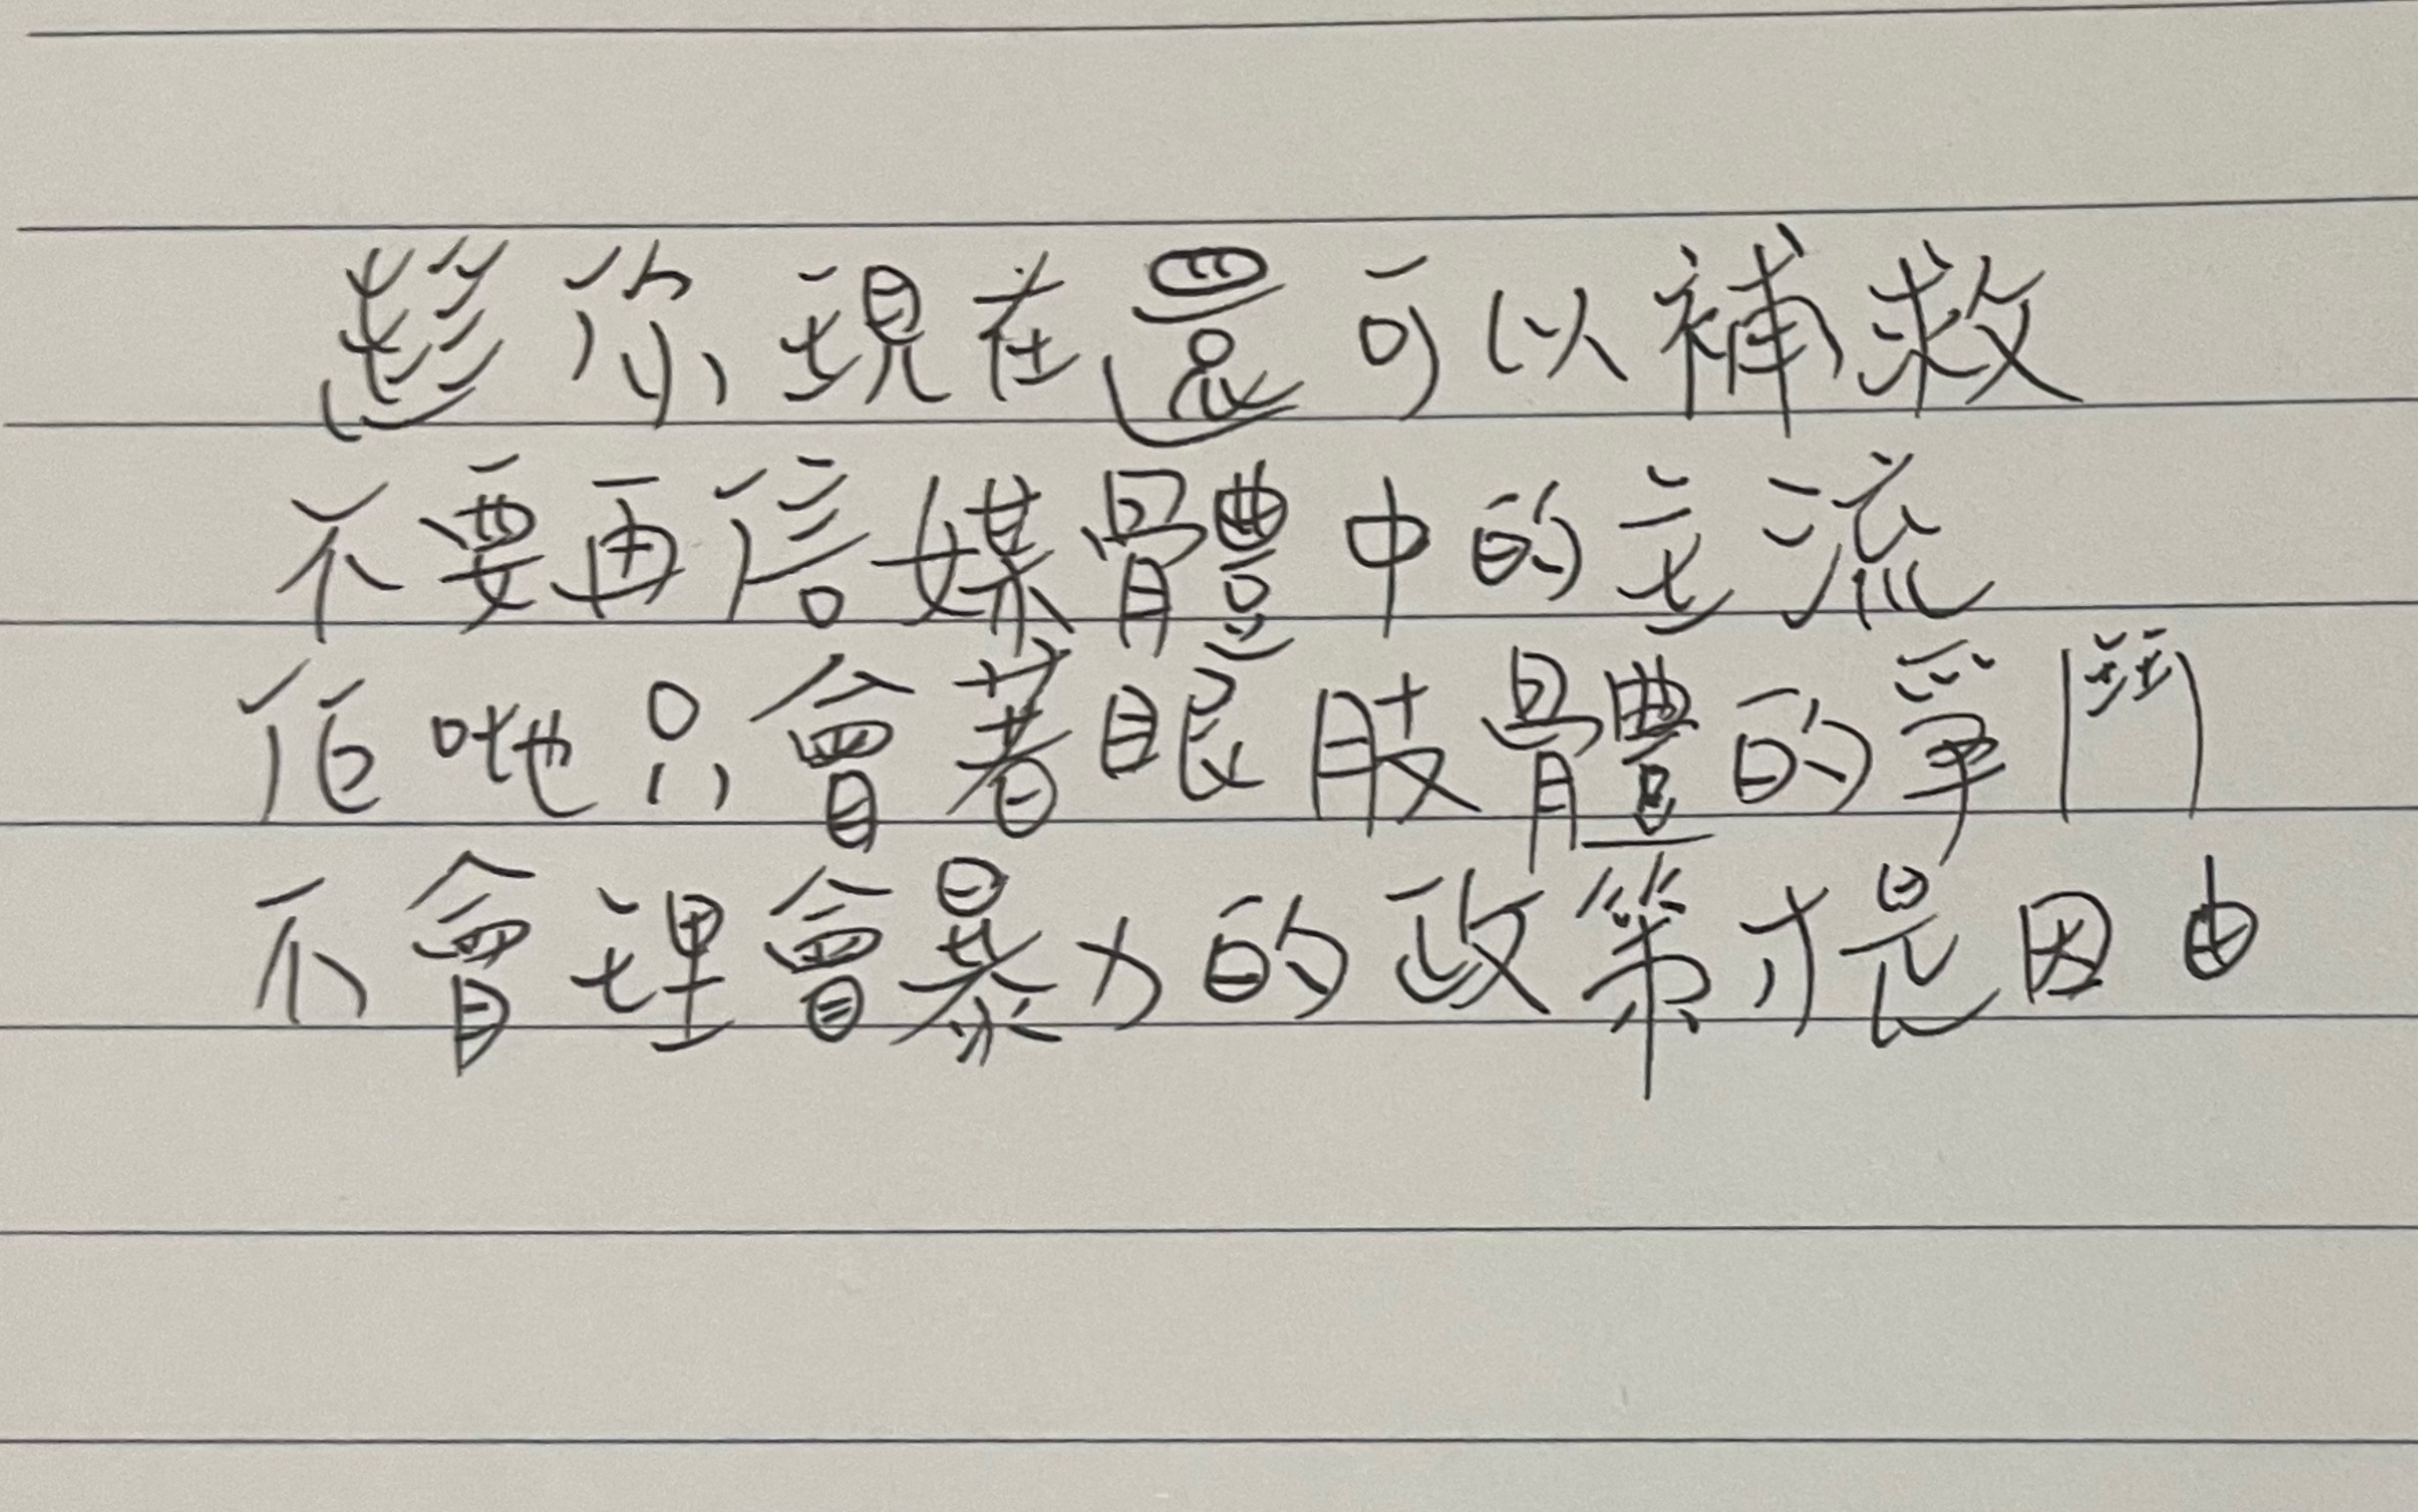 趁你現在還可以補救
不要再信媒體中的主流
佢哋只會著眼肢體的爭鬥
不會理會暴力的政策才是因由